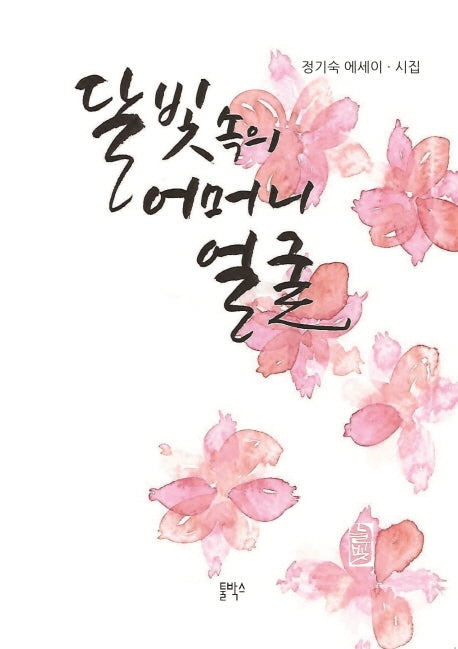 정기숙 에세이 · 시집
달빛 속의
어머니
얼굴
툴박스